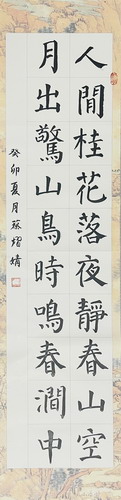 人閒桂花落夜靜春山空
月出驚山鳥時鳴春澗中
癸卯夏月蔡熠婧